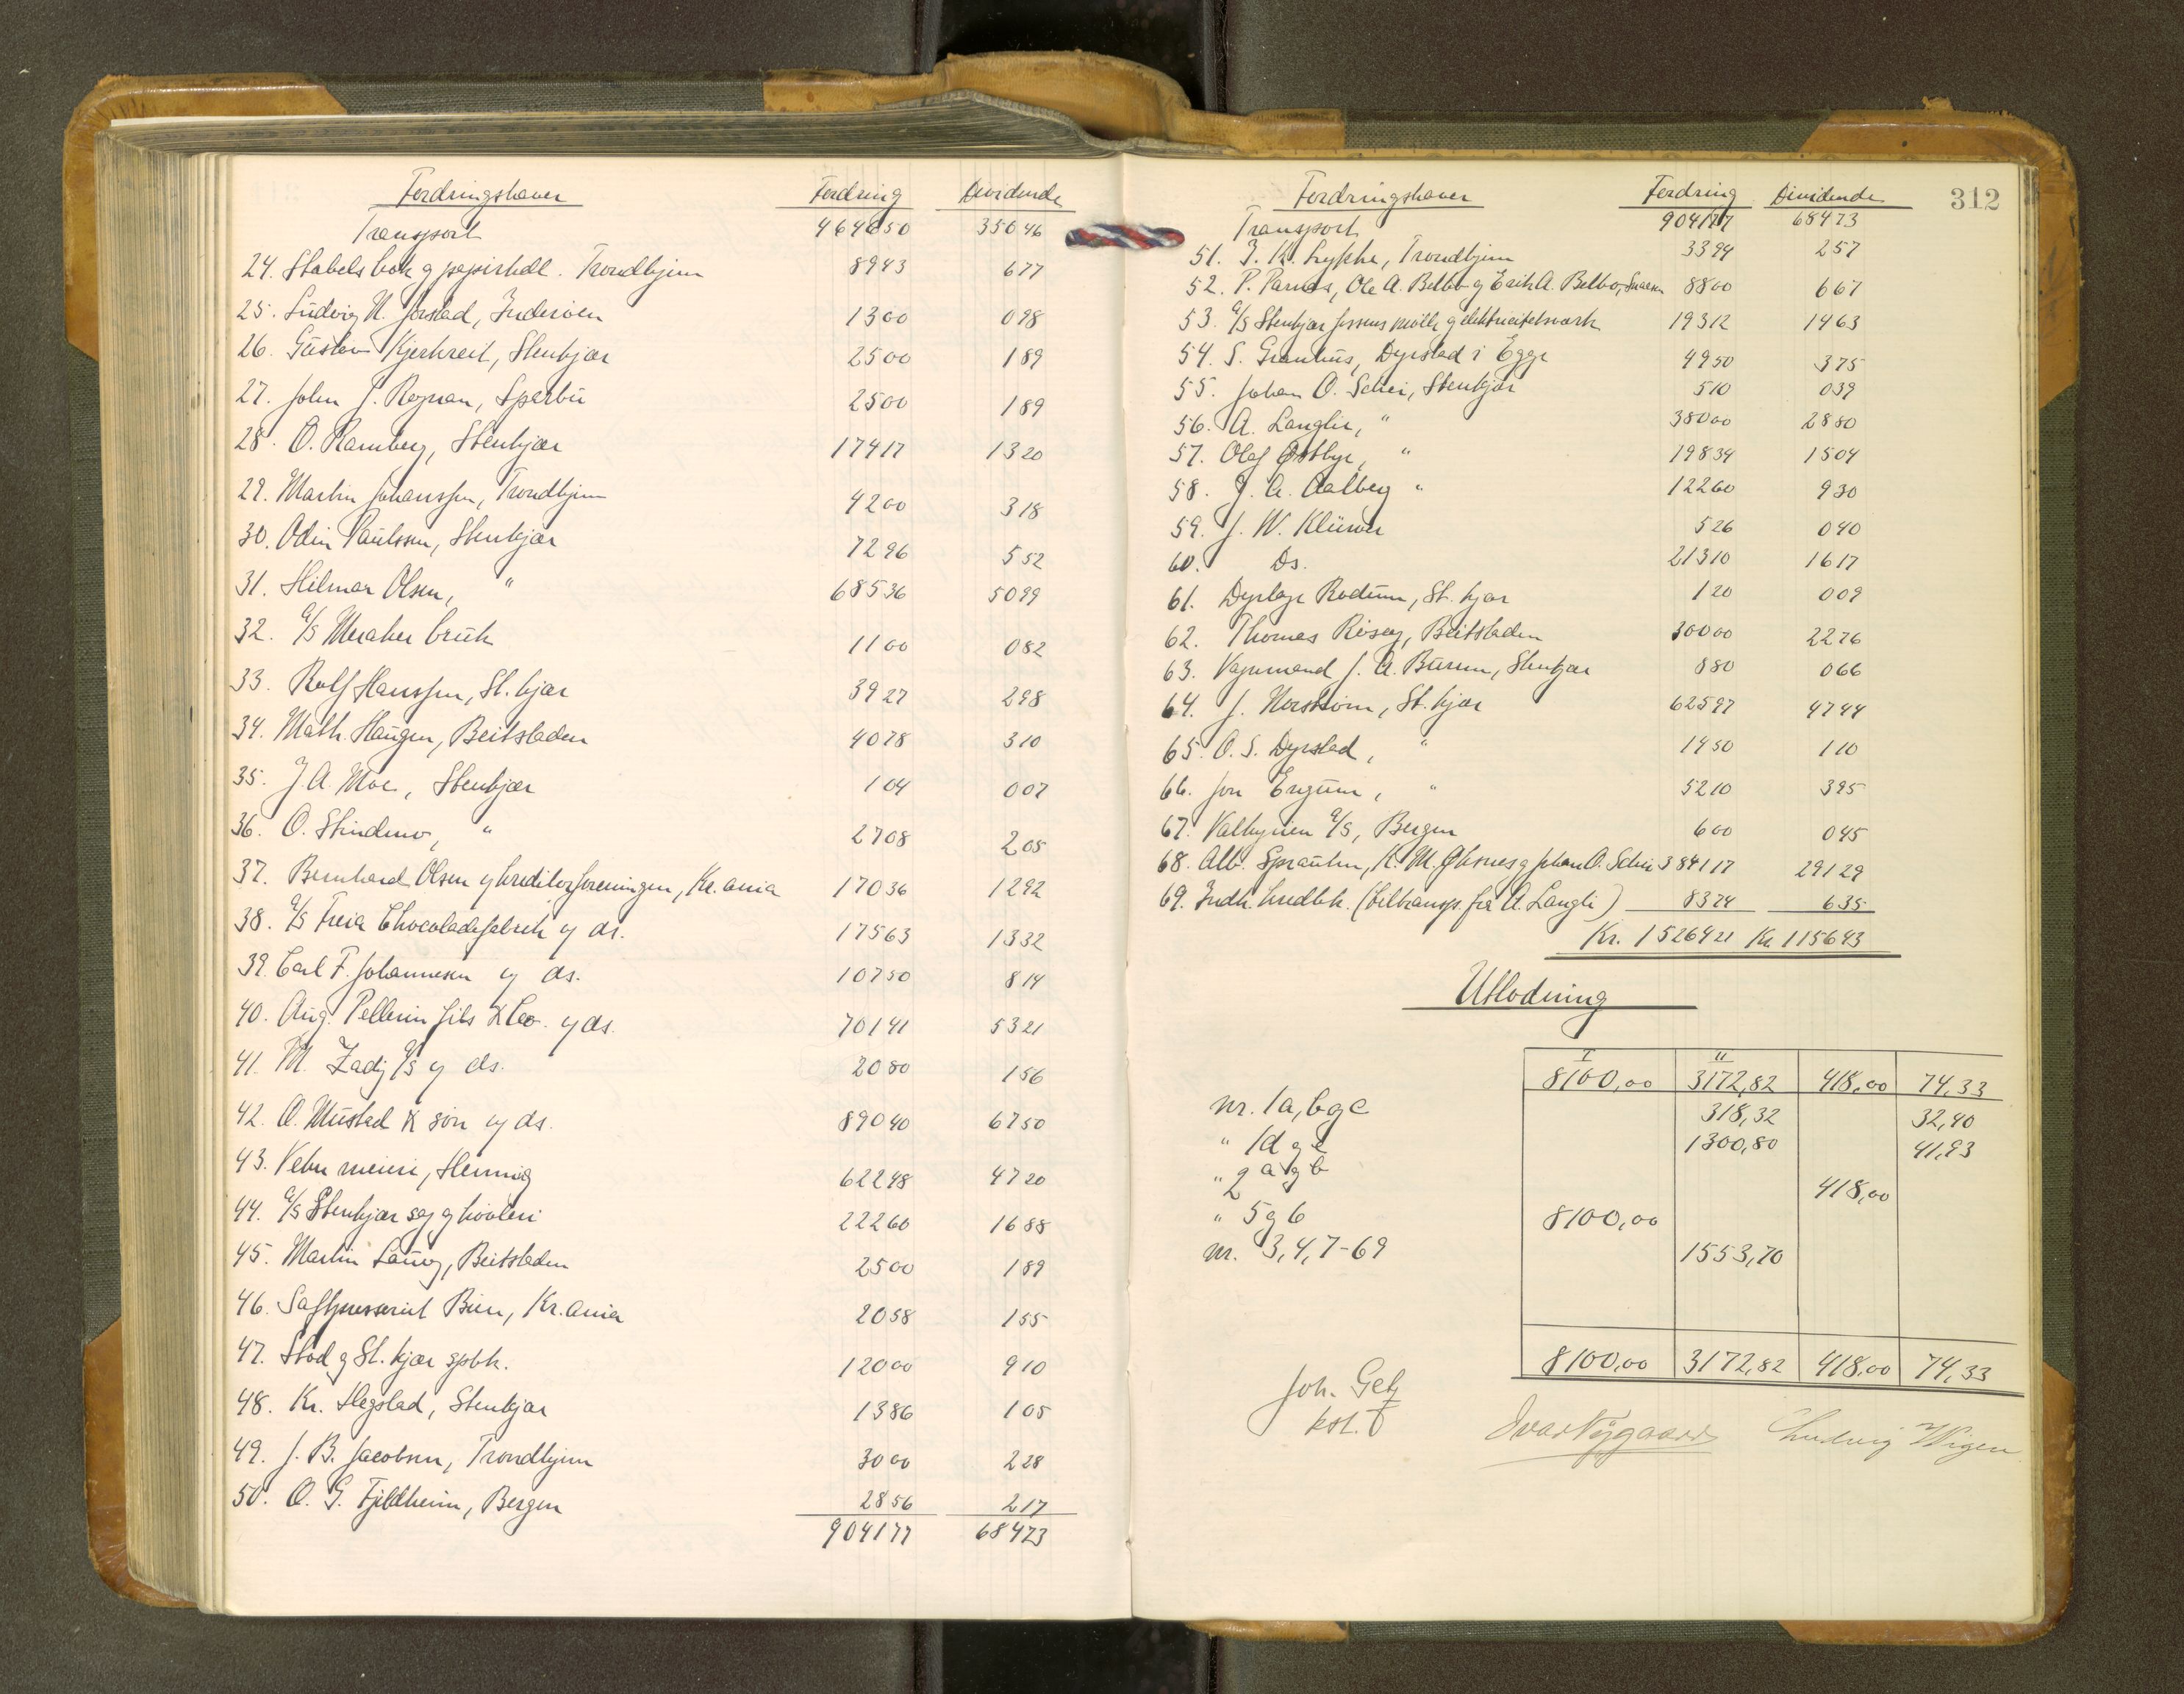 Fordringshaver Fordring Dividende
Transport 464650 35046
24. Stabels bok g papirhdl. Trondhjem 8943 677
25. Ludvig N. Jørstad, Inderøen 1300 098
26. Gustav Kjerkreit, Stenkjær 2500 189
27. John J. Rognan, Sparbu 2500 189
28. O. Ramberg, Stenkjær 17417 1320
29. Martin Johanssen, Trondhjem 4200 318
30. Odin Paulssen, Stenkjær 7296 552
31. Hilmar Olsen, " 68536 5099
32. A/S Meraker bruk 1100 082
33. Rolf Hanssen, St.kjær 3927 298
34. Math. Haugen, Beitstaden 4078 310
35. J. A. Moe, Stenkjær 104 007
36. O. Stindmo, " 2708 205
37. Bernhard Olsen g kreditorforeningen, Kr.ania 17036 1292
38. A/S Freia Chocoladefabrik g ds. 17563 1332
39. Carl F. Johannesen g ds. 10750 814
40. Aug. Pellerin fils & Co. g ds. 70141 5321
41. M. Zadig A/S g ds. 2080 156
42. O. Mustad & søn g ds. 89040 6750
43. meieri, Henning 62248 4720
44. A/S Stenkjær sag g høvleri 22260 1688
45. Martin, Beitstaden 2500 189
46. Saftpresseriet Bien, Kr.ania 2058 155
47. Stod g St.kjær spbk. 12000 910
48. Kr. Hegstad, Stenkjær 1386 105
49. J. B. Jacobsen, Trondhjem 3000 228
50. O. G. Fjeldheim, Bergen 2856 217
904177 68473
312
Fordringshaver Fordring Dividende
Transport 904177 68473
51. J. K. Lykke, Trondhjem 3394 257
52. P. Parnas, Ole A. Belbo g Erik A. Belbo, Snaasen 8800 667
53. A/S Stenkjærfossens mølle g elektricitetsverk 19312 1463
54. S. Granhus, Dyrstad i Egge 4950 375
55. Johan O. Schei, Stenkjær 510 039
56. A. Langli, " 38000 2880
57. Olaf Østbye, " 19834 1504
58. J. A. Aalberg " 12260 930
59. J. W. Klüwer 526 040
60. Ds. 21310 1617
61. Dyrlæge Rodum, St.kjær 120 009
62. Thomas Røseg, Beitstaden 30000 2276
63. Vognmand J. A. Buran, Stenkjær 880 066
64. J. Norstrøm, St.kjær 62597 4744
65. O. S. Dyrstad, " 1450 110
66. Jon Ergum, " 5210 395
67. Valkyrien A/S, Bergen 600 045
68. Alb. , K. M. g Johan O. Schei 384117 29129
69. Indh. kredbk. (tiltransp. fra A. Langli) 8374 635
Kr. 1526421 Kr. 115643
Utlodning
I II
8100,00 3172,82 418,00 74,33
nr. 1a, b g c 318,32 32,40
" 1d g e 1300,80 41,93
" 2 a g b 418,00
" 5 g 6 8100,00
nr. 3, 4, 7-69 1553,70
8100,00 3172,82 418,00 74,33
Joh. Getz
kst.
Ivar Nygaard Ludvig Wigen